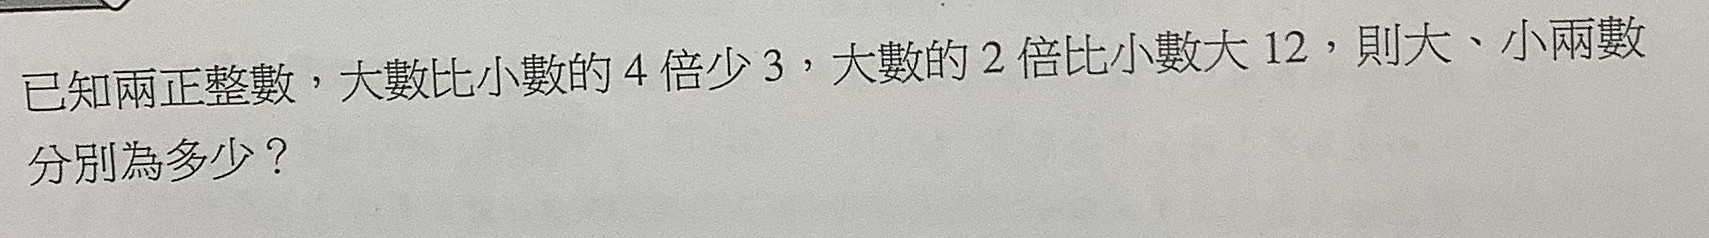 已知兩正整數，大數比小數的 4 倍少 3，大數的 2 倍比小數大 12，則大、小兩數
分別為多少？